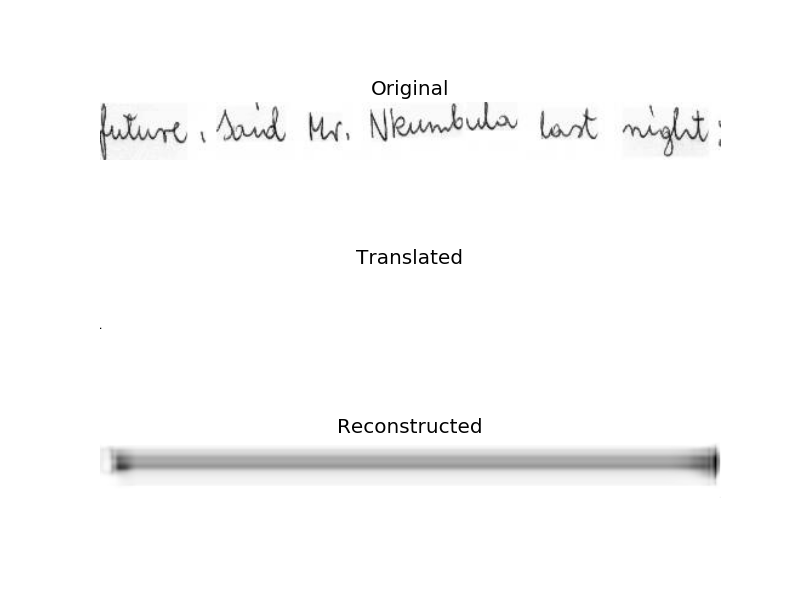 Original
future, said Mr. Nkumbula last night:
Translated
.
Reconstructed